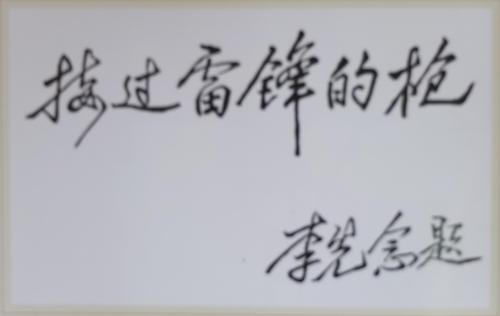 接过雷锋的枪
李先念题